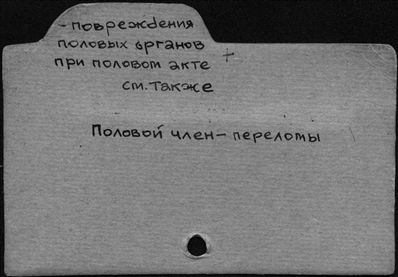 - повреждения
половых органов
при половом акте +
см. также
Половой член - переломы